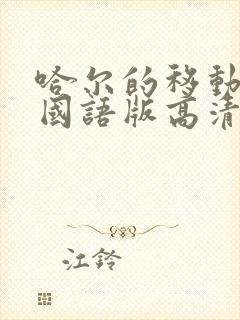 哈尔的移動
國語版高清
江鈴